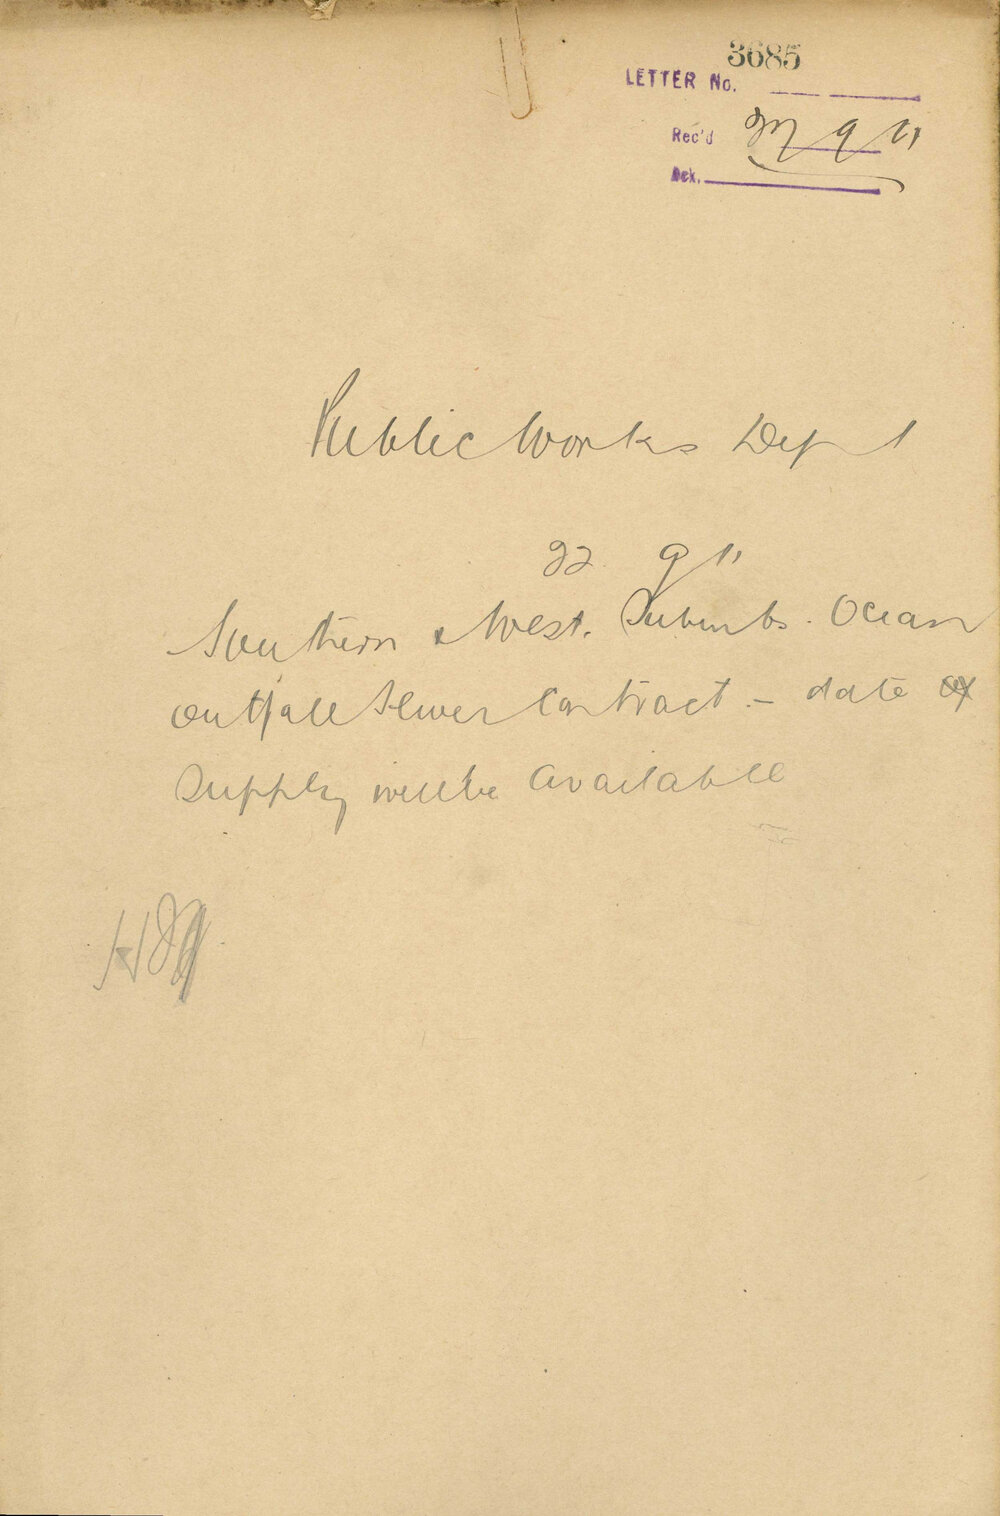 3685
LETTER No.
Rec'd 9 11
Ack.
Public Works Dept
22 9 11
Southern & West. Suburbs. Ocean
Outfall Sewer Contract. - date
Supply will be available